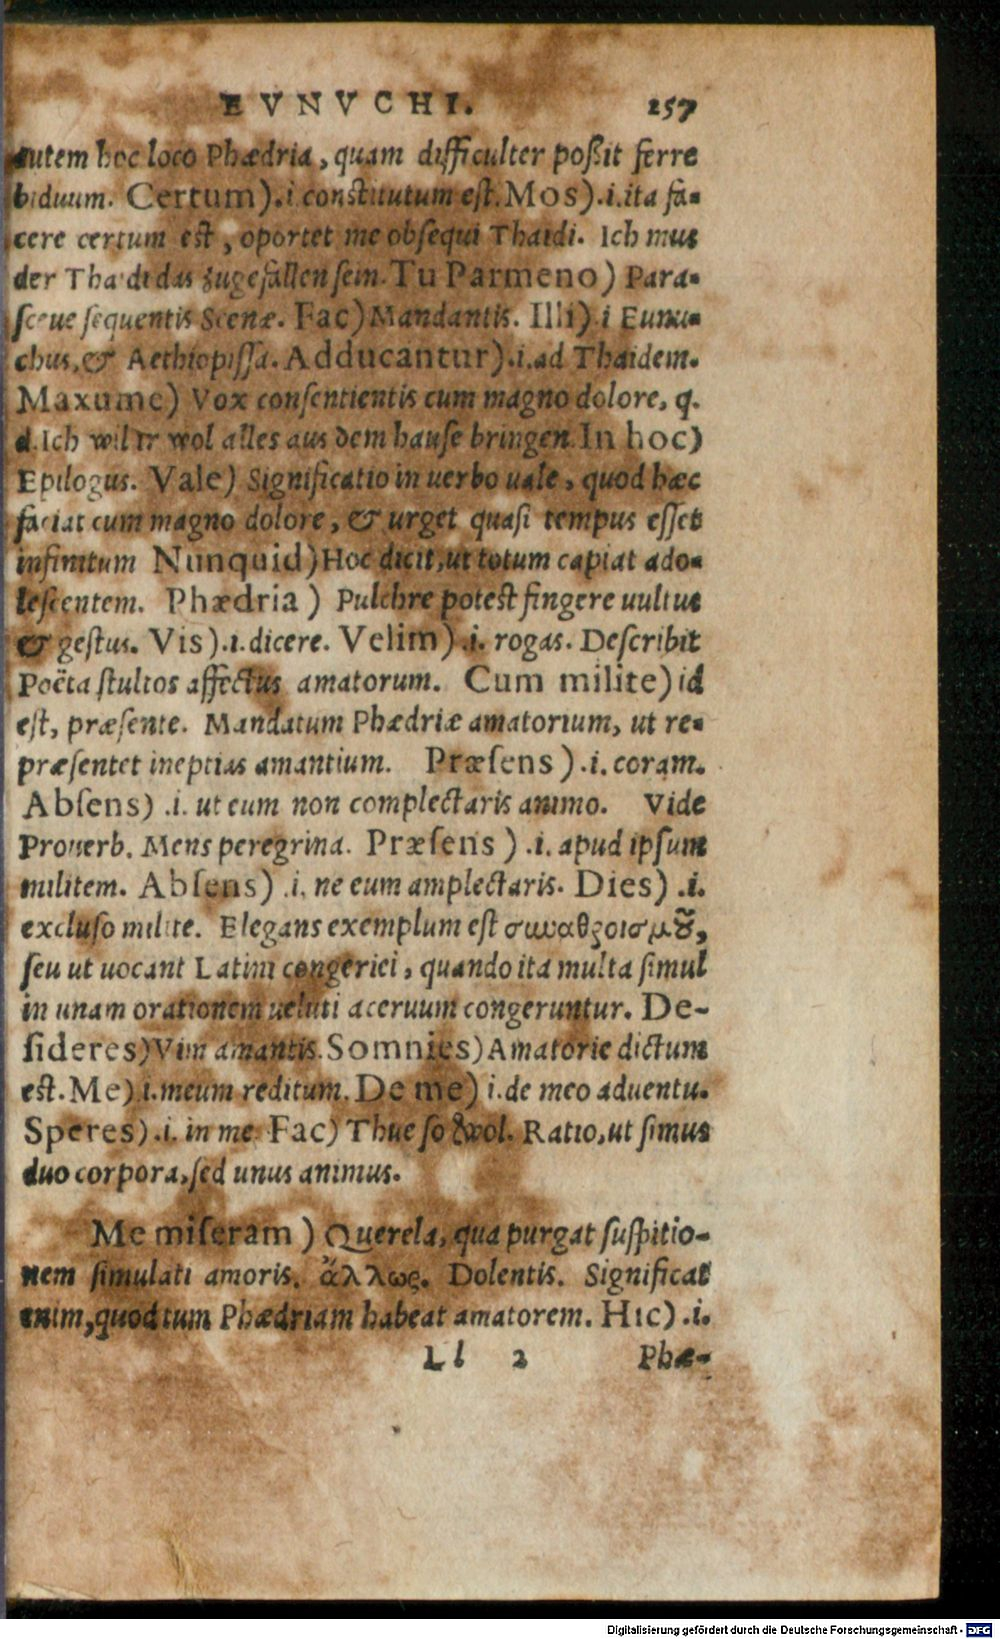 EVNVCHI. 257
autem hoc loco Phædria, quam difficulter poßit ferre
biduum. Certum) .i. constitutum est. Mos) .i. ita fa-
cere certum est, oportet me obsequi Thaidi. Ich mus
der Thaidi das zugefallen sein. Tu Parmeno) Para-
sceue sequentis Scenæ. Fac) Mandantis. Illi) .i Eunu-
chus, & Aethiopissa. Adducantur) .i. ad Thaidem.
Maxume) Vox consentientis cum magno dolore, q.
d. Ich wil Ir wol alles aus dem hause bringen. In hoc)
Epilogus. Vale) Significatio in uerbo uale, quod hæc
faciat cum magno dolore, & urget quasi tempus esset
infinitum Nunquid) Hoc dicit, ut totum capiat ado-
lescentem. Phædria ) Pulchre potest fingere uultus
& gestus. Vis) .i. dicere. Velim) .i. rogas. Describit
Poëta stultos affectus amatorum. Cum milite) id
est, præsente. Mandatum Phædriæ amatorium, ut re-
præsentet ineptias amantium. Præsens ) .i. coram.
Absens) .i. ut eum non complectaris animo. Vide
Prouerb. Mens peregrina. Præsens ) .i. apud ipsum
militem. Absens) .i. ne eum amplectaris. Dies) .i.
excluso milite. Elegans exemplum est συναθροισμοῦ,
seu ut uocant Latini congeriei, quando ita multa simul
in unam orationem ueluti aceruum congeruntur. De-
sideres) Vim amantis. Somnies) Amatorie dictum
est. Me) .i. meum reditum. De me) i. de meo aduentu.
Speres) .i. in me. Fac) Thue so wol. Ratio, ut simus
duo corpora, sed unus animus.
Me miseram ) Querela, qua purgat suspitio-
nem simulati amoris. ἄλλως. Dolentis. Significat
enim, quod tum Phædriam habeat amatorem. Hic) .i.
Ll 2 Phæ-
Digitalisierung gefördert durch die Deutsche Forschungsgemeinschaft - DFG